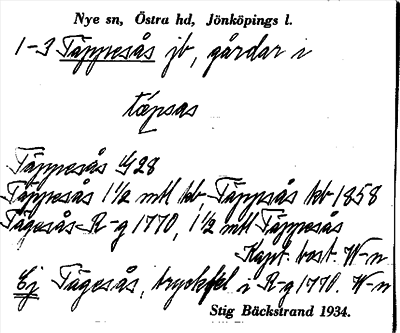 Nye sn, Östra hd, Jönköpings l.
1-3 Täppesås jb, gårdar i
täpsas
Täppesås G28
Täppesås 1 1/2 mtl kb, Täppsås kb 1858
Tägesås R-g 1770, 1 1/2 mtl Täppesås
Kapt. bost. W-n
Ej Tägesås, tryckfel i R-g 1770. W-n
Stig Bäckstrand 1934.